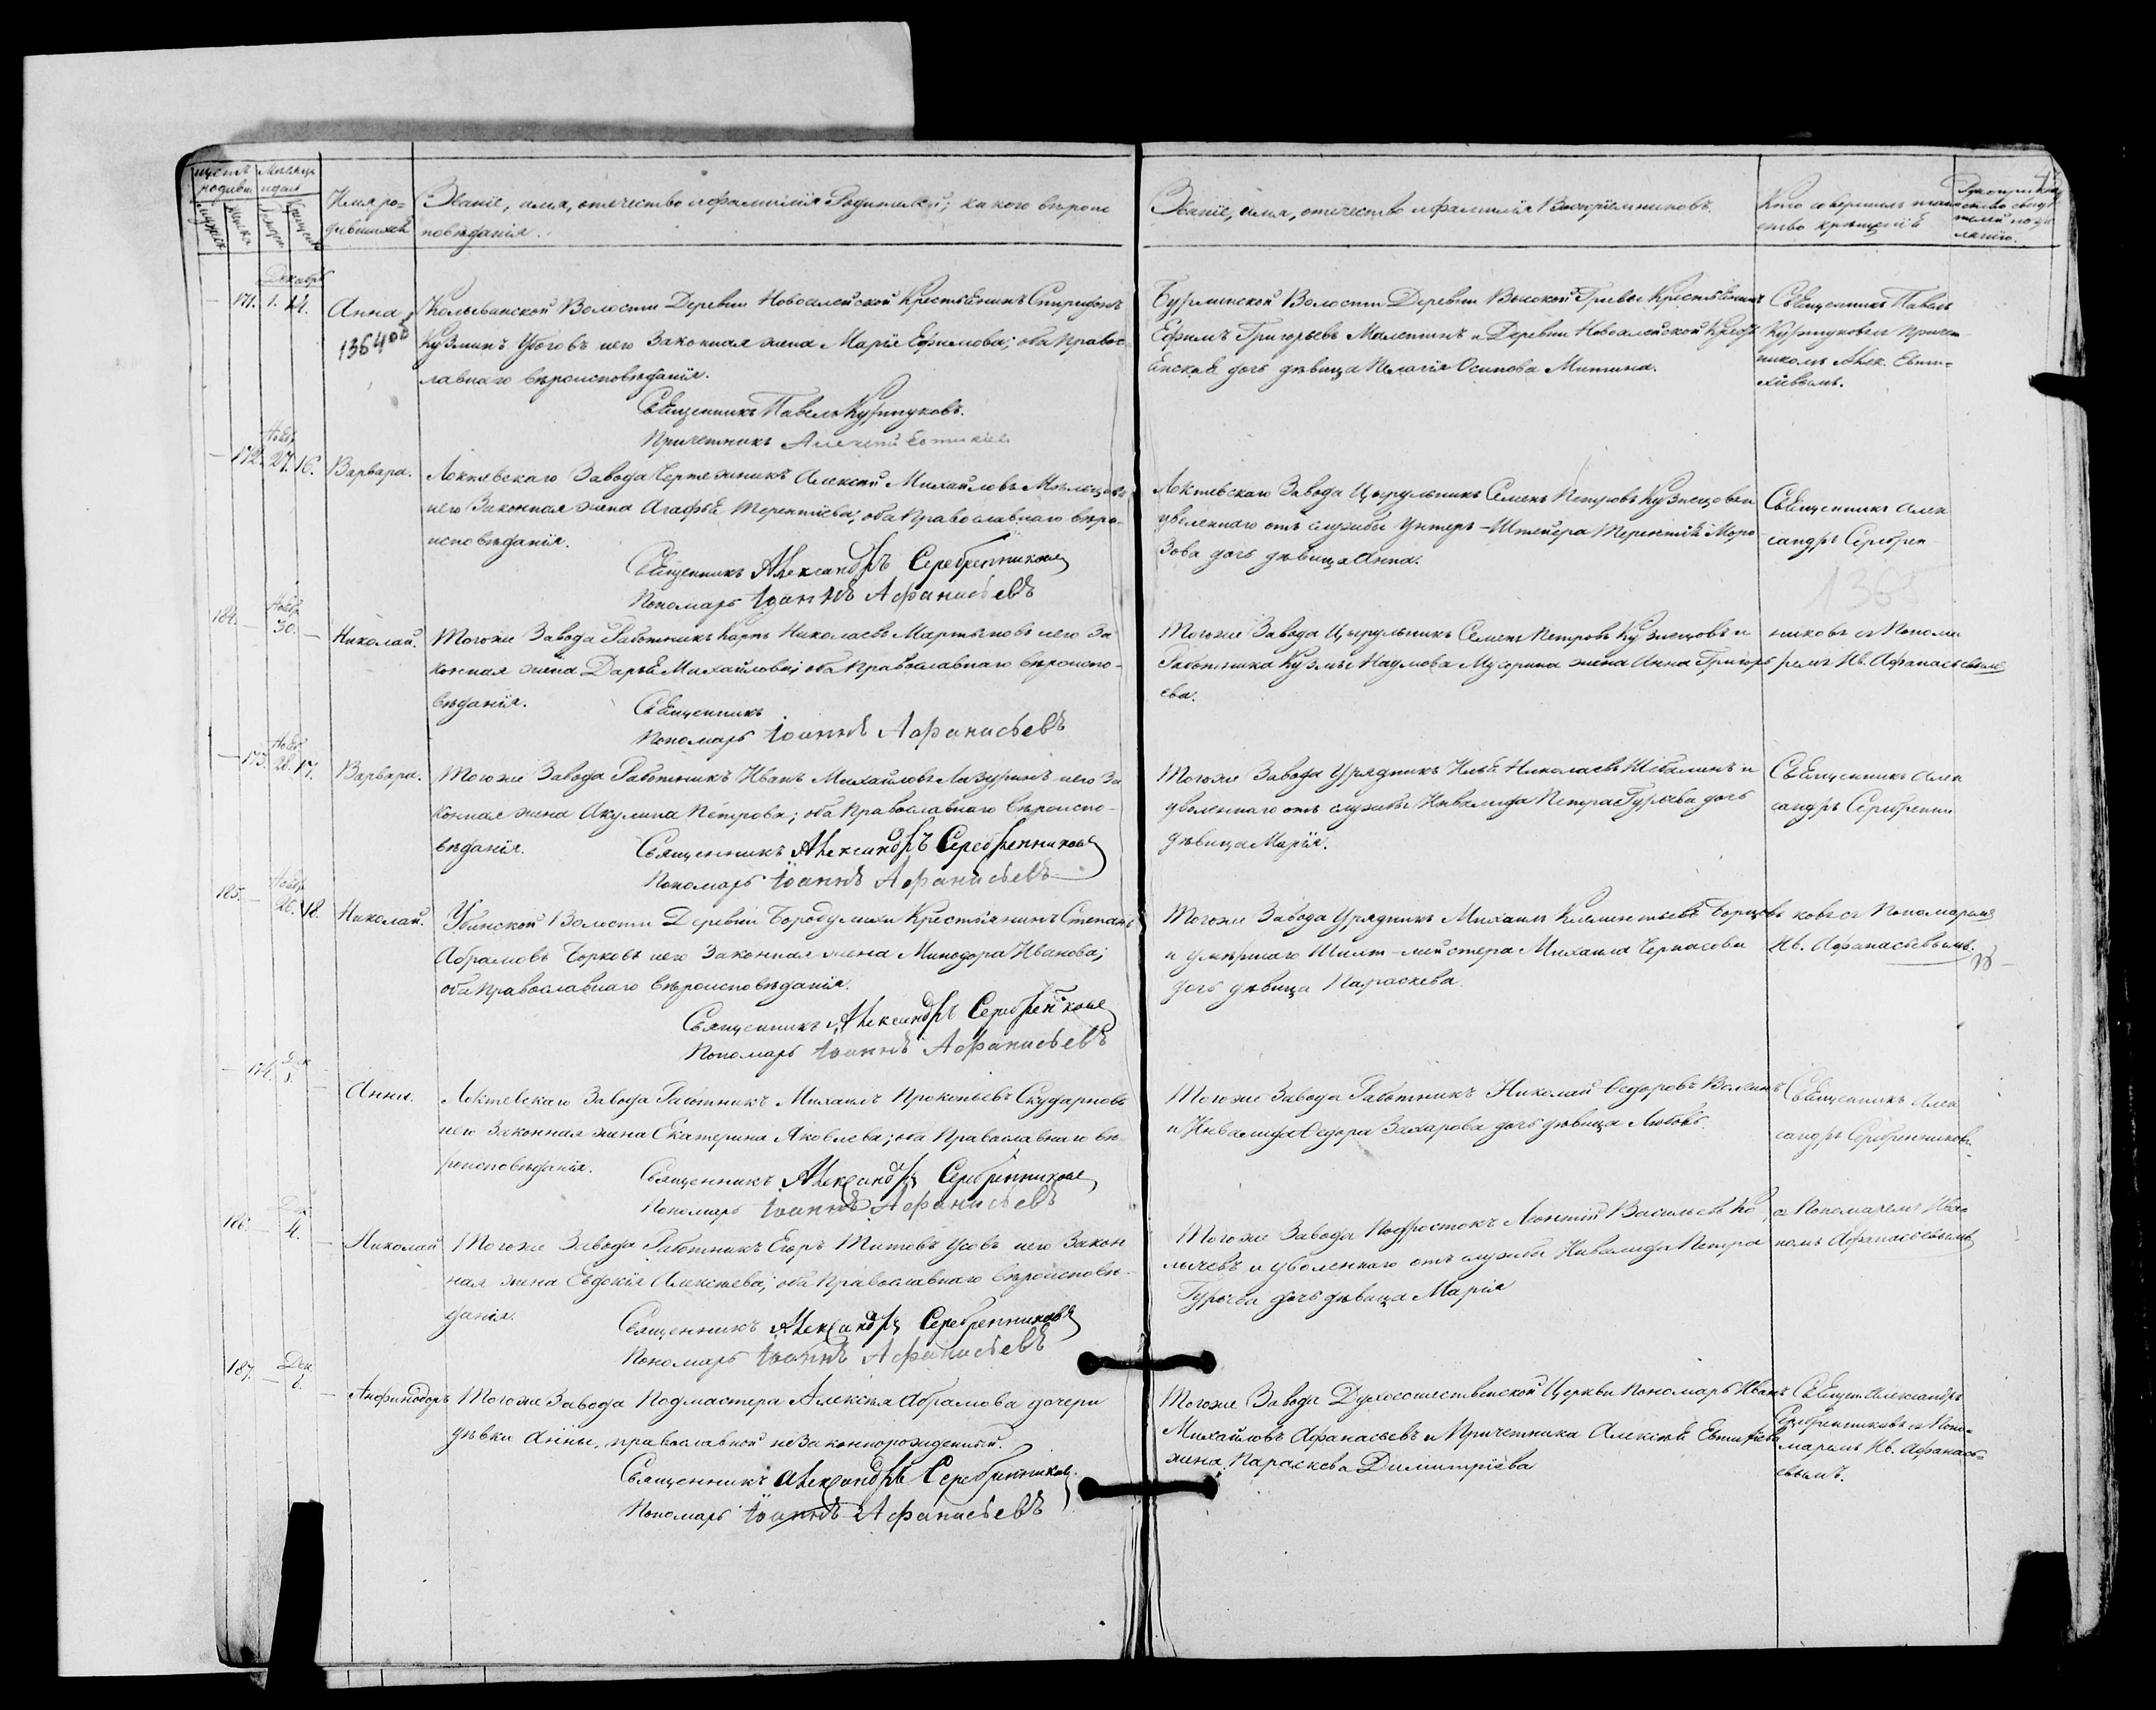 Счетъ родивш. Мѣсяцъ и день
Мужска Женска Рожден. Крещен.
Имя ро=
дившихся
Званіе, имя, отечество и фамилія Родителей; какого вѣроис
повѣданія.
Званіе, имя, отечество и фамилія Воспріемниковъ.
Кто совершилъ таин
ство крещенія
Декабрь
171. 1. 14. Анна
13640
Колыванской Волости Деревни Новоалейской Крестьянинъ Спиридонъ
Кузминъ Уоговъ и его Законная жена Марія Ефимова; оба Правос
лавнаго вѣроисповѣданія.
Священникъ Павелъ
Причетникъ Алексей Евтихіевъ
Деревни Высокой Гривы Крестьянинъ
Ефимъ Григорьевъ и Деревни Новоалейской
дочь дѣвица Пелагія Осипова Митина.
Священникъ Павелъ
съ Причет
никомъ Алек. Евти=
хіевымъ.
Ноябр
172. 27. 16. Варвара.
Локтевскаго Завода Чертежникъ Алексей Михайловъ
и его Законная жена Агафья Терентіева; оба Православнаго вѣро-
исповѣданія.
Священникъ Александръ Серебренниковъ
Пономарь Іоаннъ Афанасьевъ
Локтевскаго Завода Цырульникъ Семенъ Петровъ Кузнецовъ и
уволеннаго отъ службы Унтеръ-Штейгера Терентія Моро
зова дочь дѣвица Анна.
Священникъ Алек
сандръ Серебрен
1365
184. Ноябр 30. Николай.
Тогоже Завода Работникъ Карпъ Николаевъ Мартыновъ и его За
конная жена Дарья Михайлова; оба Православнаго вѣроиспо-
вѣданія.
Священникъ
Пономарь Іоаннъ Афанасьевъ
Тогоже Завода Цырульникъ Семенъ Петровъ Кузнецовъ и
Работника Кузмы Наумова Мусорина жена Анна Григорь
ева.
никовъ съ Понома
ремъ Ив. Афанасьевымъ
173. Ноябр 28. 17. Варвара.
Тогоже Завода Работникъ Иванъ Михайловъ Лазуринъ и его За
конная жена Акулина Петрова; оба Православнаго вѣроиспо-
вѣданія.
Священникъ Александръ Серебренниковъ
Пономарь Іоаннъ Афанасьевъ
Тогоже Завода Урядникъ Николаевъ и
уволеннаго отъ службы Инвалида Петра Гурьева дочь
дѣвица Марія.
Священникъ Алек
сандръ Серебренни
185. Ноябр 26. 18. Николай.
Убинской Волости Деревни Бородулихи Крестьянинъ Степанъ
Абрамовъ Борковъ и его Законная жена Минодора Иванова;
оба Православнаго вѣроисповѣданія.
Священникъ Александръ Серебрениковъ
Пономарь Іоаннъ Афанасьевъ
Тогоже Завода Урядникъ Михаилъ Климентьевъ Борцовъ
и умершаго Шихт-мейстера Михаила Черкасова
дочь дѣвица Параскева.
ковъ съ Пономаремъ
Ив. Афанасьевымъ.
174. Дек 1. Анна.
Локтевскаго Завода Работникъ Михаилъ Прокопьевъ Скударновъ
и его Законная жена Екатерина Яковлева; оба Православнаго вѣ
роисповѣданія.
Священникъ Александръ Серебренниковъ
Пономарь Іоаннъ Афанасьевъ
Тогоже Завода Работникъ Николай Ѳедоровъ
и Инвалида Ѳедора Захарова дочь дѣвица Любовь.
Священникъ Алек
сандръ Серебренниковъ
186. Дек 4. Николай
Тогоже Завода Работникъ Егоръ Титовъ Усовъ и его Закон
ная жена Евдокія Алексѣева; оба Православнаго вѣроисповѣ-
данія.
Священникъ Александръ Серебренниковъ
Пономарь Іоаннъ Афанасьевъ
Тогоже Завода Подростокъ Леонтій Васильевъ Ко
лычевъ и уволеннаго отъ службы Инвалида Петра
Гурьева дочь дѣвица Марія
съ Пономаремъ Ива=
номъ Афанасьевымъ
187. Дек. 6. Анфинодоръ
Тогоже Завода Подмастера Алексѣя Абрамова дочери
дѣвки Анны, православной незаконнорожденный.
Священникъ Александръ Серебренниковъ.
Пономарь Іоаннъ Афанасьевъ
Тогоже Завода Духосошественской Церкви Пономарь Иванъ
Михайловъ Афанасьевъ и Причетника Алексѣя Евтихіева
жена Параскева Димитріева
Священ. Александръ
Серебренниковъ съ Поно=
маремъ Ив. Афанась=
евымъ.